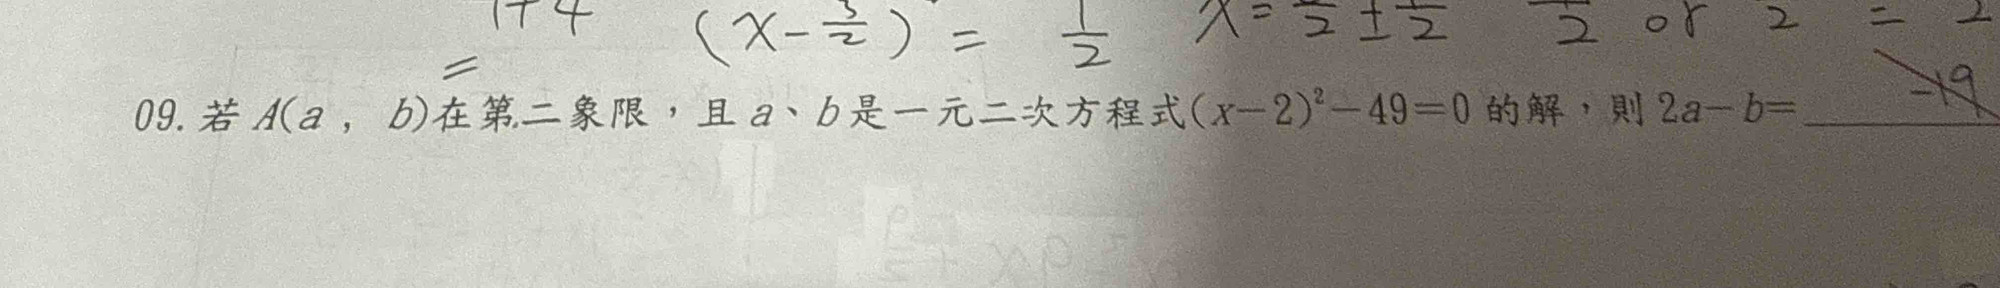 1+4 (x-3/2)² = 1/2 x= /2 ± /2 /2 or 2 = 2
=
09. 若 A(a , b)在第二象限，且 a、b 是一元二次方程式(x-2)²-49=0 的解，則 2a-b= -19